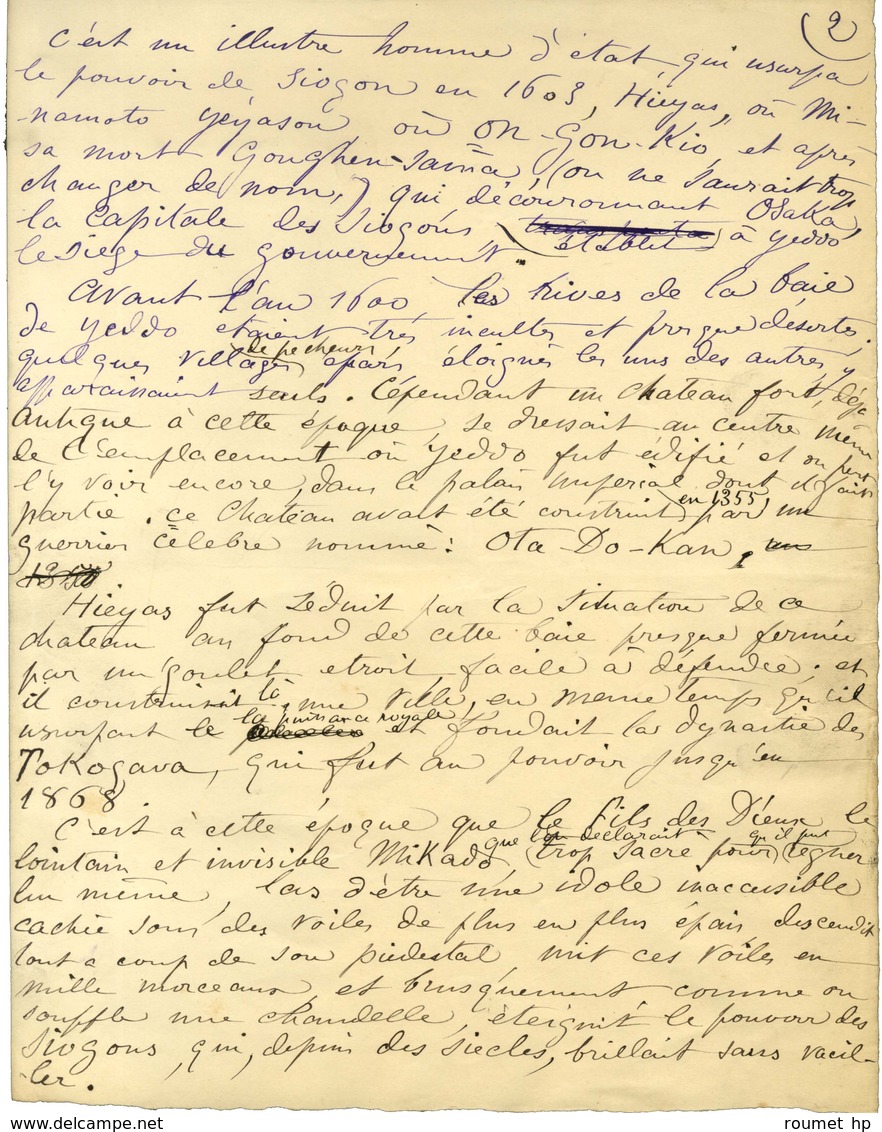 (2
C'est un illustre homme d'état qui usurpa
le pouvoir de Siogon en 1603, Hiéyas, ou Mi-
-namoto Yéyasou, ou On-Gon-Kio et après
sa mort Gonghen-Sama, (on ne saurait trop
changer de nom,) qui découronnant Osaka,
la Capitale des Siogons établit à Yeddo
le siège du gouvernement.
Avant l'an 1600, les rives de la baie
de Yeddo étaient très incultes et presque désertes.
quelques villages de pecheurs épars, éloignés les uns des autres, y
apparaissaient seuls. Cépendant un chateau fort, déjà
antique à cette époque, se dressait au centre même
de l'émplacement où Yeddo fut édifié et on peut
l'y voir encore, dans le palais impérial dont il fait
partie. ce chateau avait été construit en 1355, par un
guerrier célebre nommé: Ota-Do-Kan,
Hiéyas fut séduit par la situation de ce
chateau au fond de cette baie presque fermée
par un goulet etroit, facile à défendre. et
il construisit là, une ville, en meme temps qu'il
usurpait le la puissance royale et fondait la dynastie des
Tokogava, qui fut au pouvoir jusqu'en
1868.
C'est à cette époque que le fils des Dieux le
lointain et invisible Mikado que l'on déclarait trop sacré pour qu'il put régner
lui même, las d'être une idole inaccessible
cachée sous des voiles de plus en plus épais descendit
tout a coup de son piédestal mit ces voiles en
mille morceaux et brusquement comme on
souffle une chandelle, éteignit le pouvoir des
Siogons, qui, depuis des siècles, brillait sans vacil-
-ler.
roumet hp